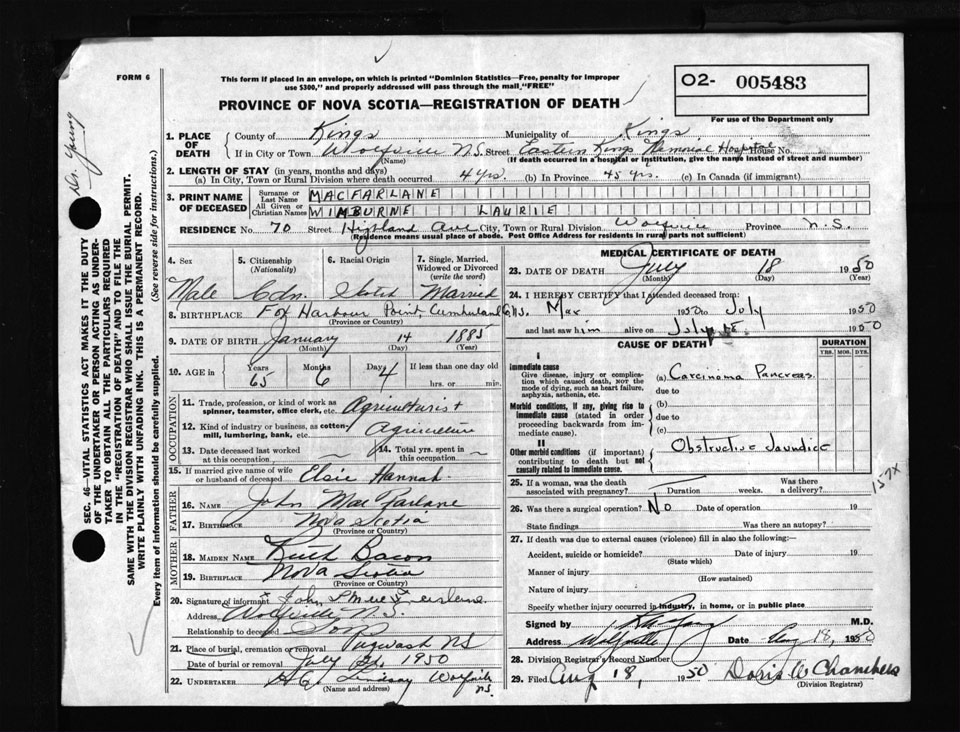 FORM 6
This form if placed in an envelope, on which is printed "Dominion Statistics—Free, penalty for improper
use $300," and properly addressed will pass through the mail "FREE"
O2- 005483
PROVINCE OF NOVA SCOTIA—REGISTRATION OF DEATH
For use of the Department only
Dr. Young
1. PLACE OF DEATH
County of Kings Municipality of Kings
If in City or Town Wolfville N.S. Street Eastern Kings Memorial Hospital House No.
(Name) (If death occurred in a hospital or institution, give the name instead of street and number)
2. LENGTH OF STAY (in years, months and days)
(a) In City, Town or Rural Division where death occurred 4 yrs. (b) In Province 45 yrs. (c) In Canada (if immigrant)
3. PRINT NAME OF DECEASED
Surname or Last Name MACFARLANE
All Given or Christian Names WIMBURNE LAURIE
RESIDENCE No. 70 Street Highland Ave City, Town or Rural Division Wolfville Province N.S.
(Residence means usual place of abode. Post Office Address for residents in rural parts not sufficient)
4. Sex Male
5. Citizenship (Nationality) Cdn.
6. Racial Origin Scotch
7. Single, Married, Widowed or Divorced (write the word) Married
8. BIRTHPLACE Fox Harbour Point, Cumberland Co. N.S.
(Province or Country)
9. DATE OF BIRTH January 14 1885
(Month) (Day) (Year)
10. AGE in Years 65 Months 6 Days 4 If less than one day old hrs. or min.
OCCUPATION
11. Trade, profession, or kind of work as spinner, teamster, office clerk, etc. Agriculturist
12. Kind of industry or business, as cotton-mill, lumbering, bank, etc. Agriculture
13. Date deceased last worked at this occupation
14. Total yrs. spent in this occupation
15. If married give name of wife or husband of deceased Elsie Hannah
FATHER
16. NAME John MacFarlane
17. BIRTHPLACE Nova Scotia
(Province or Country)
MOTHER
18. MAIDEN NAME Ruth Bacon
19. BIRTHPLACE Nova Scotia
(Province or Country)
20. Signature of informant John
Address Wolfville N.S.
Relationship to deceased Son
21. Place of burial, cremation or removal Pugwash NS
Date of burial or removal July 1950
22. UNDERTAKER Lindsay Wolfville N.S.
(Name and address)
MEDICAL CERTIFICATE OF DEATH
23. DATE OF DEATH July 18 1950
(Month) (Day)
24. I HEREBY CERTIFY that I attended deceased from:
1950 to July 1950
and last saw him alive on July 1950
CAUSE OF DEATH
DURATION
YRS. MOS. DYS.
I
Immediate cause
Give disease, injury or complication which caused death, NOT the mode of dying, such as heart failure, asphyxia, asthenia, etc.
(a) Carcinoma Pancreas.
due to
Morbid conditions, if any, giving rise to immediate cause (stated in order proceeding backwards from immediate cause).
(b)
due to
(c)
II
Other morbid conditions (if important) contributing to death but not causally related to immediate cause.
Obstructive Jaundice
157X
25. If a woman, was the death associated with pregnancy? Duration weeks. Was there a delivery?
26. Was there a surgical operation? No Date of operation 19
State findings Was there an autopsy?
27. If death was due to external causes (violence) fill in also the following:
Accident, suicide or homicide? Date of injury 19
(State which)
Manner of injury
(How sustained)
Nature of injury
Specify whether injury occurred in industry, in home, or in public place
Signed by M.D.
Address Wolfville Date Aug 18, 1950
28. Division Registrar's Record Number
29. Filed Aug 18, 1950 Doris W Chambers
(Division Registrar)
SEC. 46—VITAL STATISTICS ACT MAKES IT THE DUTY
OF THE UNDERTAKER OR PERSON ACTING AS UNDER-
TAKER TO OBTAIN ALL THE PARTICULARS REQUIRED
IN THE "REGISTRATION OF DEATH" AND TO FILE THE
SAME WITH THE DIVISION REGISTRAR WHO SHALL ISSUE THE BURIAL PERMIT.
WRITE PLAINLY WITH UNFADING INK. THIS IS A PERMANENT RECORD.
Every item of information should be carefully supplied. (See reverse side for instructions.)